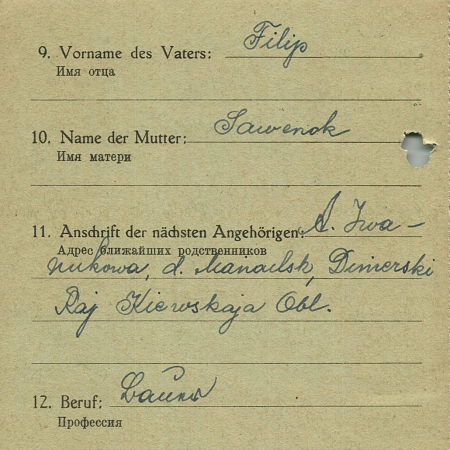 9. Vorname des Vaters: Filip
Имя отца
10. Name der Mutter: Sawenok
Имя матери
11. Anschrift der nächsten Angehörigen: A. Iwa-
Адрес ближайших родственников
nukowa, d. Manailsk, Dimerski
Raj Kiewskaja Obl.
12. Beruf: Bauer
Профессия